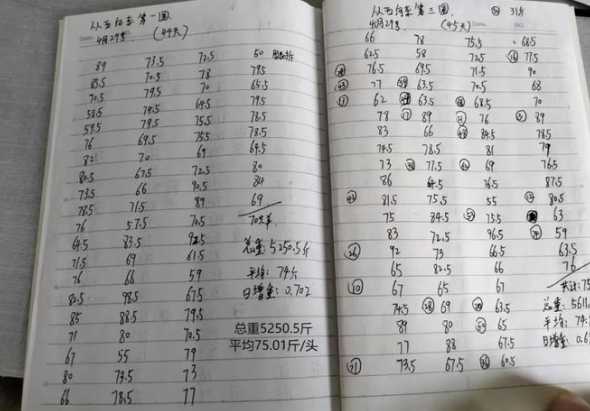 从西向东第一圈
4月29号. (44天)
89 73.5 72.5 50
83.5 70.5 78 79.5
70.5 79.5 70 65.5
58.5 74.5 64.5 79.5
59.5 79.5 75.5 78.5
76 69.5 75.5 78.5
82 70 69 64.5
80.5 67.5 72.5 80
73.5 66 90.5 84
78.5 71.5 89 69
76 57.5 70.5
64.5 83.5
71.5 69 61.5
76 66 59
80.5 98.5 67.5
85 88.5 79.5
71 80 70.5
67 55 79
80 73.5 73
66 78.5 77
总重: 5250.5斤
平均:
日增重: 0.702
总重5250.5斤
平均75.01斤/头
4月29号. (45天)
66 78 75.5 68.5
62.5 58 72.5 77.5
76.5 69.5 71.5 90
77 63.5 70.5 68
62 63.5 68.5 70
78 89 76 89
83 66 84.5 78.5
74.5 78.5 81 79
73 77.5 69 76.5
86 76.5 87.5
81.5 75.5 55 80.5
75 84.5 73.5 63
83 72.5 96.5 59
92 73 66.5 63.5
65 82.5 66 76
67 65 67
74.5 69 63.5
89 80 65
77 88 67.5
73.5 67.5 60.5
总重:
平均:
日增重: